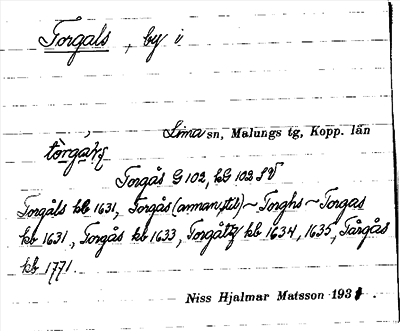 Torgals, by i
Lima sn, Malungs tg, Kopp. län
Torgås G 102, kG 102 SV
Torgåls kb 1631, Torgås (annan stil) ~ Torghs ~ Torgas
kb 1631, Torgås kb 1633, Torgåltz kb 1634, 1635, Tårgås
kb 1771.
Niss Hjalmar Matsson 193